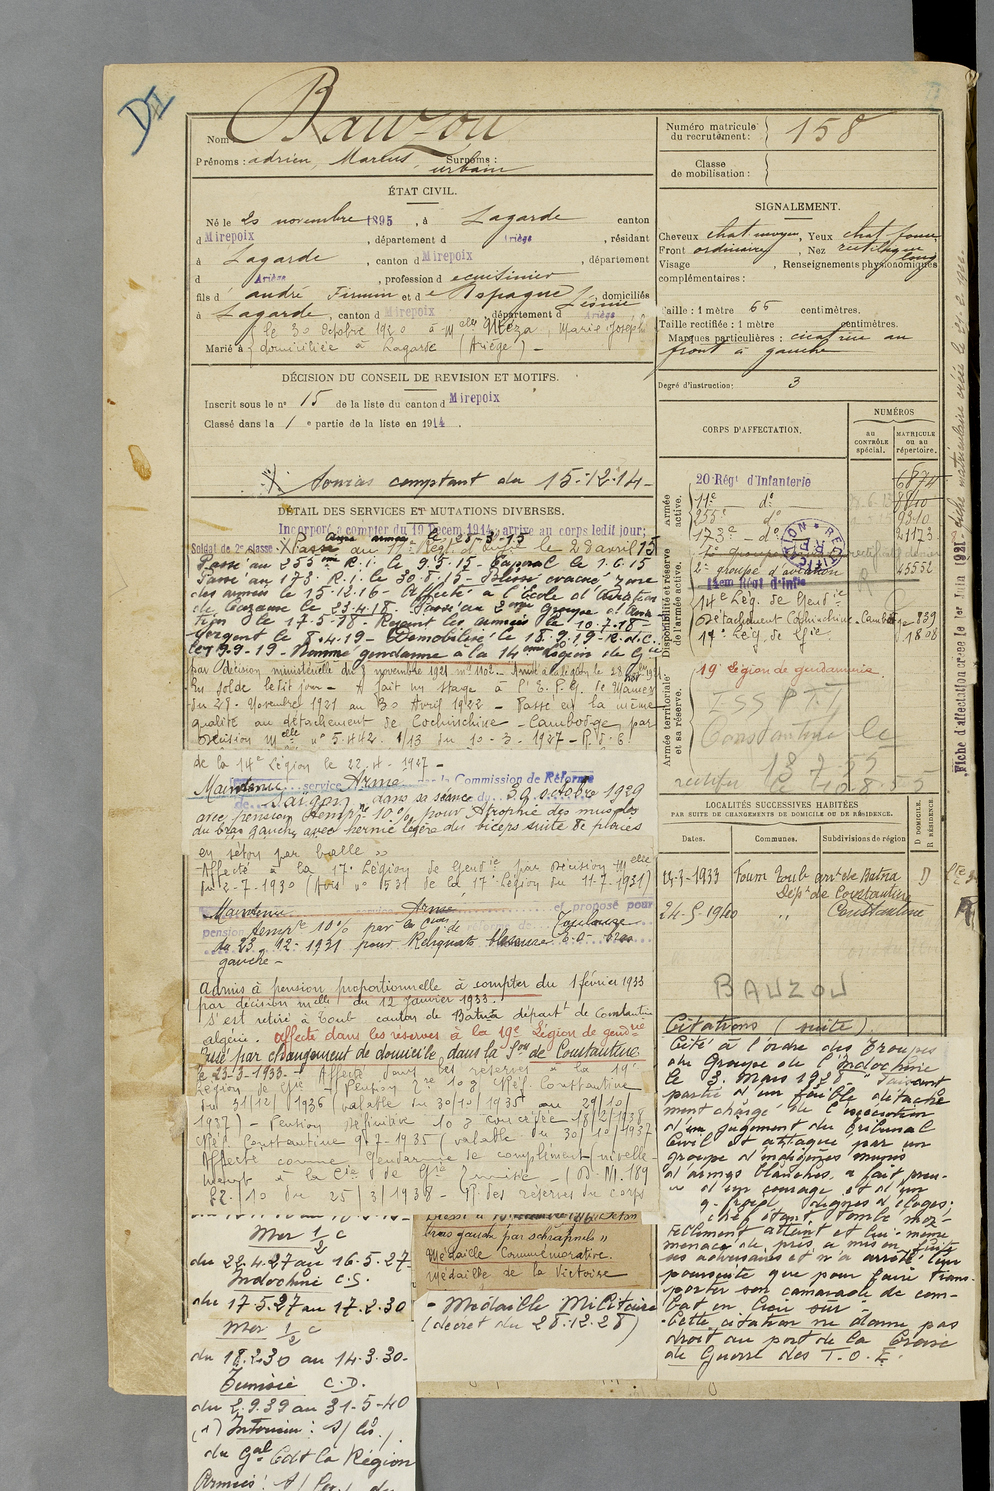 DII
Nom : Bauzou
Prénoms : adrien, Marius, Surnoms :
urbain
ÉTAT CIVIL.
Né le 20 novembre 1895, à Lagarde canton
d Mirepoix, département d Ariège, résidant
à Lagarde, canton d Mirepoix, département
d Ariège, profession d
fils d' andré Firmin et d e Espagne, domiciliés
à Lagarde, canton d Mirepoix département d Ariège
le 30 octobre 1920 à Melle Méza, Marie Joseph
Marié à domiciliée à Lagarde (Ariège) -
DÉCISION DU CONSEIL DE REVISION ET MOTIFS.
Inscrit sous le no 15 de la liste du canton d Mirepoix
Classé dans la 1 e partie de la liste en 1914.
comptant du 15.12.14-
DÉTAIL DES SERVICES ET MUTATIONS DIVERSES.
Incorporé à compter du 19 Decem 1914, arrive au corps ledit jour;
Soldat de 2e classe. Passé au Régt d'Infie le 29 avril 15
Passé au 255ème R.i. le 9.5.15 - Caporal le 1.6.15
Passé au 173e R.i. le 30.8.15 - évacué zone
des armées le 15.12.16 - Affecté à l'École d'aviation
de Cazaux le 23.4.18. Passé au 2me groupe d'avia
tion le 17.5.18. Rejoint les armées le 10.7.18 -
Sergent le 8.4.19 - Démobilisé le 18.9.19. R.d.C.
le 19.9.19 - Nommé gendarme à la 14ème Légion de Gie
par décision ministérielle du 8 novembre 1921
En solde le dit jour - A fait un stage à l'E.P.G. de Mamers
du 28. Novembre 1921 au 30 Avril 1922 - Passé en la même
qualité au détachement de Cochinchine - Cambodge, par
décision Melle no 5.442. 1/13 du 10-3-1927 - R.d.C.
de la 14e Légion le 22.4.1927 -
Maintenu service Armé de la Commission de Réforme
de Saïgon dans sa séance du 30 octobre 1929
avec pension tempre 10% pour Atrophie des muscles
du bras gauche, avec hernie légère du biceps suite de plaies
en séton par balle »
Affecté à la 17e Légion de Gendie par Décision Melle
du 2-7-1930 (Avis no 1531 de la 17e Légion du 11-7-1931)
Maintenu service Armé et proposé pour
pension tempre 10% par la Cion de Toulouse
du 23.12-1931 pour Reliquats blessure bras
gauche -
Admis à pension proportionnelle à compter du 1 février 1933
par décision melle du 12 Janvier 1933.
S'est retiré à Toub canton de Batna départt de Constantine
algérie. Affecté dans les réserves à la 19e Légion de gendie
Passé par changement de domicile dans la Son de Constantine
le 23-3-1933 - Affecté dans les réserves à la 19e
Légion de Gie - Pension Tre 10% Réf. Constantine
du 31/12/1936 (valable du 30/10/1935 au 29/10/
1937) - Pension définitive 10% concédée 18/2/1938
Réf. Constantine 9-7-1935 (valable du 30/10/1937
Affecté comme Gendarme de complément nivelle-
ment à la Cie de Gie mixte - (D.M. 189
22/10 du 25/3/1938 - des réserves du corps
Mer 1/2 c
du 22.4.27 au 16.5.27-
Indochine C.S.
du 17.5.27 au 17.2.30
Mer 1/2 c
du 18.2.30 au 14.3.30-
Tunisie C.D.
du 2.9.39 au 31-5-40
(1) Intérieur : S/
du Gal Cdt la Région
Armées : S/
bras gauche par schrapnels »
Médaille Commémorative.
Médaille de la Victoire
- Médaille Militaire
(décret du 28.12.28)
Numéro matricule
du recrutement : 158
Classe
de mobilisation :
SIGNALEMENT.
Cheveux chat. moyen, Yeux chat. foncé
Front ordinaire, Nez rectiligne
Visage long, Renseignements physionomiques
complémentaires :
Taille : 1 mètre 65 centimètres.
Taille rectifiée : 1 mètre centimètres.
Marques particulières : cicatrice au
front à gauche
Degré d'instruction : 3
CORPS D'AFFECTATION.
NUMÉROS
au
CONTRÔLE
spécial.
MATRICULE
ou au
répertoire.
Armée
active.
Disponibilité et réserve
de l'armée active.
Armée territoriale
et sa réserve.
20 Régt d'Infanterie
11e do
255e do 9310
173e - do
2e groupe d'aviation 45552
14em Régt d'Infie
14e Lég. de Gendie
Détachement Cochinchine - Cambge 839
17e Lég. de Gie. 1808
RECTIFICATION
19e Légion de gendarmerie.
ISS P.T.T
Constantine le
18 7-55
rectifier le 10 8-55
LOCALITÉS SUCCESSIVES HABITÉES
PAR SUITE DE CHANGEMENTS DE DOMICILE OU DE RÉSIDENCE.
Dates.
Communes.
Subdivisions de région
D DOMICILE.
R RÉSIDENCE.
23-3-1933 Foum Toub art de Batna D
Dépt de Constantine
24-5-1940 " Constantine R
BAUZOU
Citations (suite).
Cité à l'ordre des Troupes
du Groupe de l'Indochine
le 3 Mars 1928 - "Faisant
partie d'un faible détache
ment chargé de l'exécution
d'un jugement du Tribunal
Civil et attaqué par un
groupe d'indigènes munis
d'armes blanches, a fait preu-
ve d'un courage et d'un
dignes d'éloges;
chef étant tombé mor-
tellement atteint et lui-même
menacé de près, a mis en fuite
ses adversaires et n'a arrêté leur
poursuite que pour faire trans-
porter son camarade de com-
bat en lieu sûr -
Cette citation ne donne pas
droit au port de la Croix
de Guerre des T.O.E.
Fiche d'affectation créée le 1er Juin 1921 - fiche matriculaire créée le